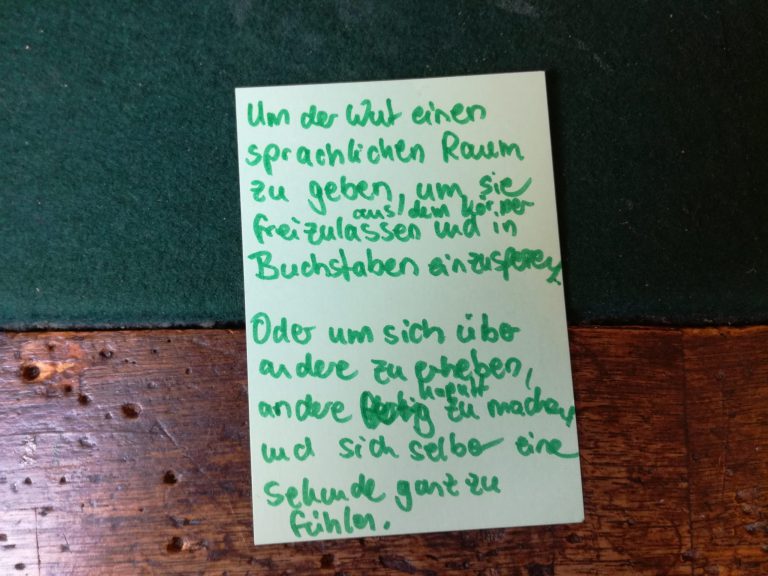 Um der Wut einen
sprachlichen Raum
zu geben, um sie
aus dem Körper
freizulassen und in
Buchstaben einzusperren
Oder um sich über
andere zu erheben,
kaputt
andere fertig zu machen
und sich selber eine
Sekunde ganz zu
fühlen.